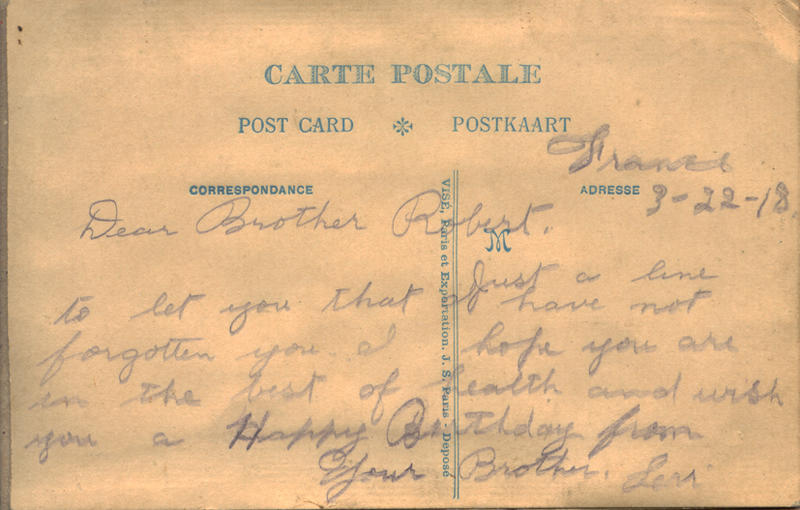 CARTE POSTALE
POST CARD POSTKAART
France
CORRESPONDANCE ADRESSE
3-22-18
Dear Brother Robert.
M
Just a line
to let you that I have not
forgotten you. I hope you are
in the best of health and wish
you a Happy Birthday from
Your Brother. Levi
VISÉ, Paris et Exportation. J. S. Paris - Déposé